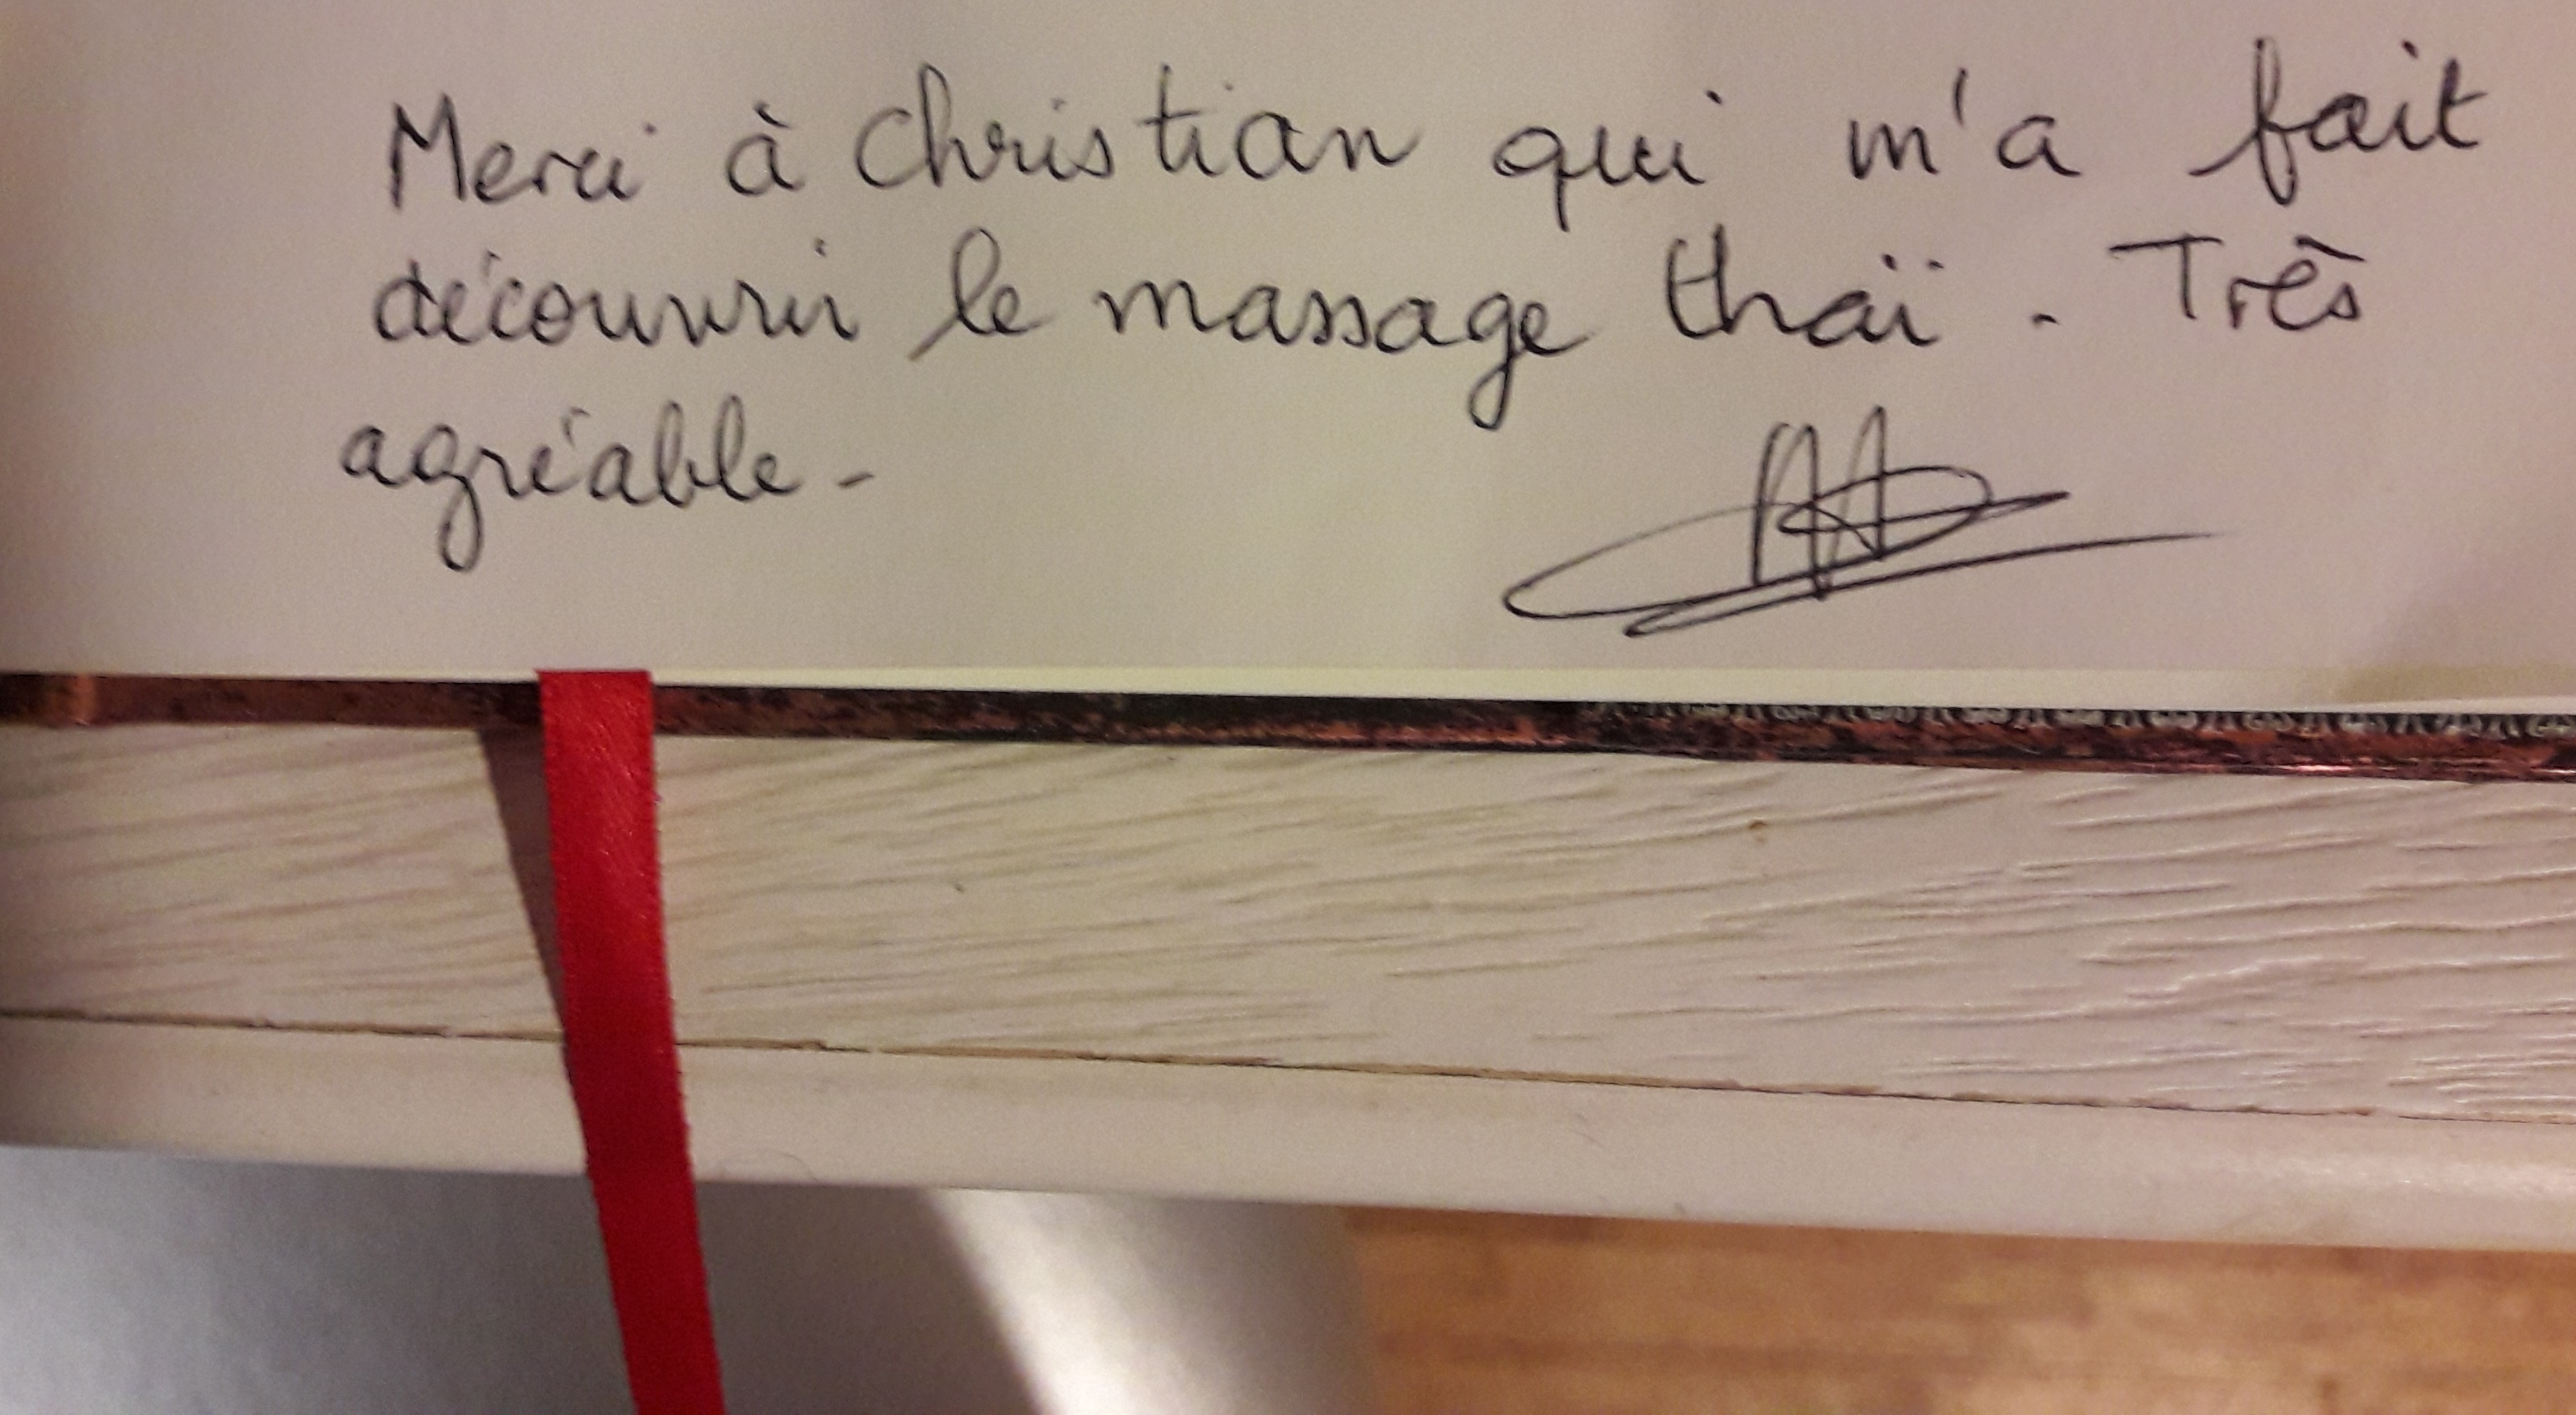 Merci à Christian qui m'a fait
découvrir le massage thaï. Très
agréable -